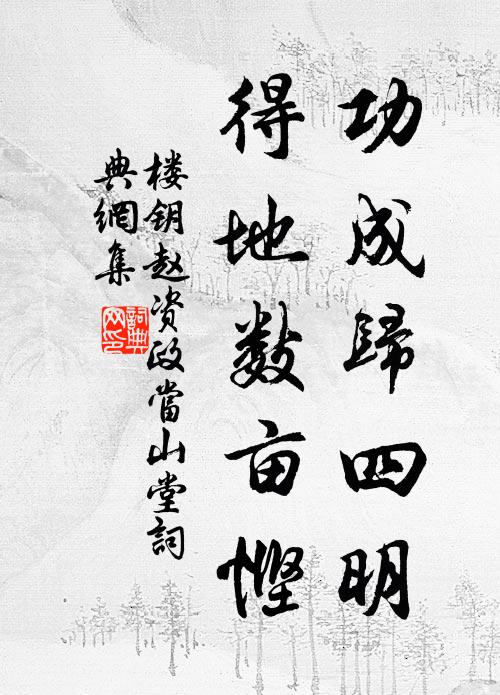 功成歸四明
得地数亩慳
楼钥赵资政當山堂詞
典網集
詞典网印